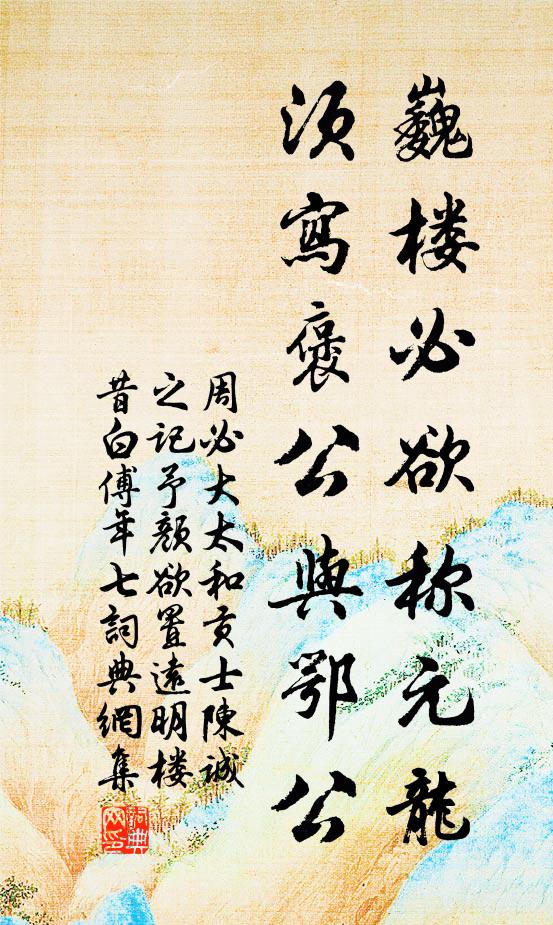 巍楼必欲称元龍
須寫褒公與鄂公
周必大太和贡士陳诚
之记予颜欲置遠明楼
昔白傅年七詞典網集
詞典
网印